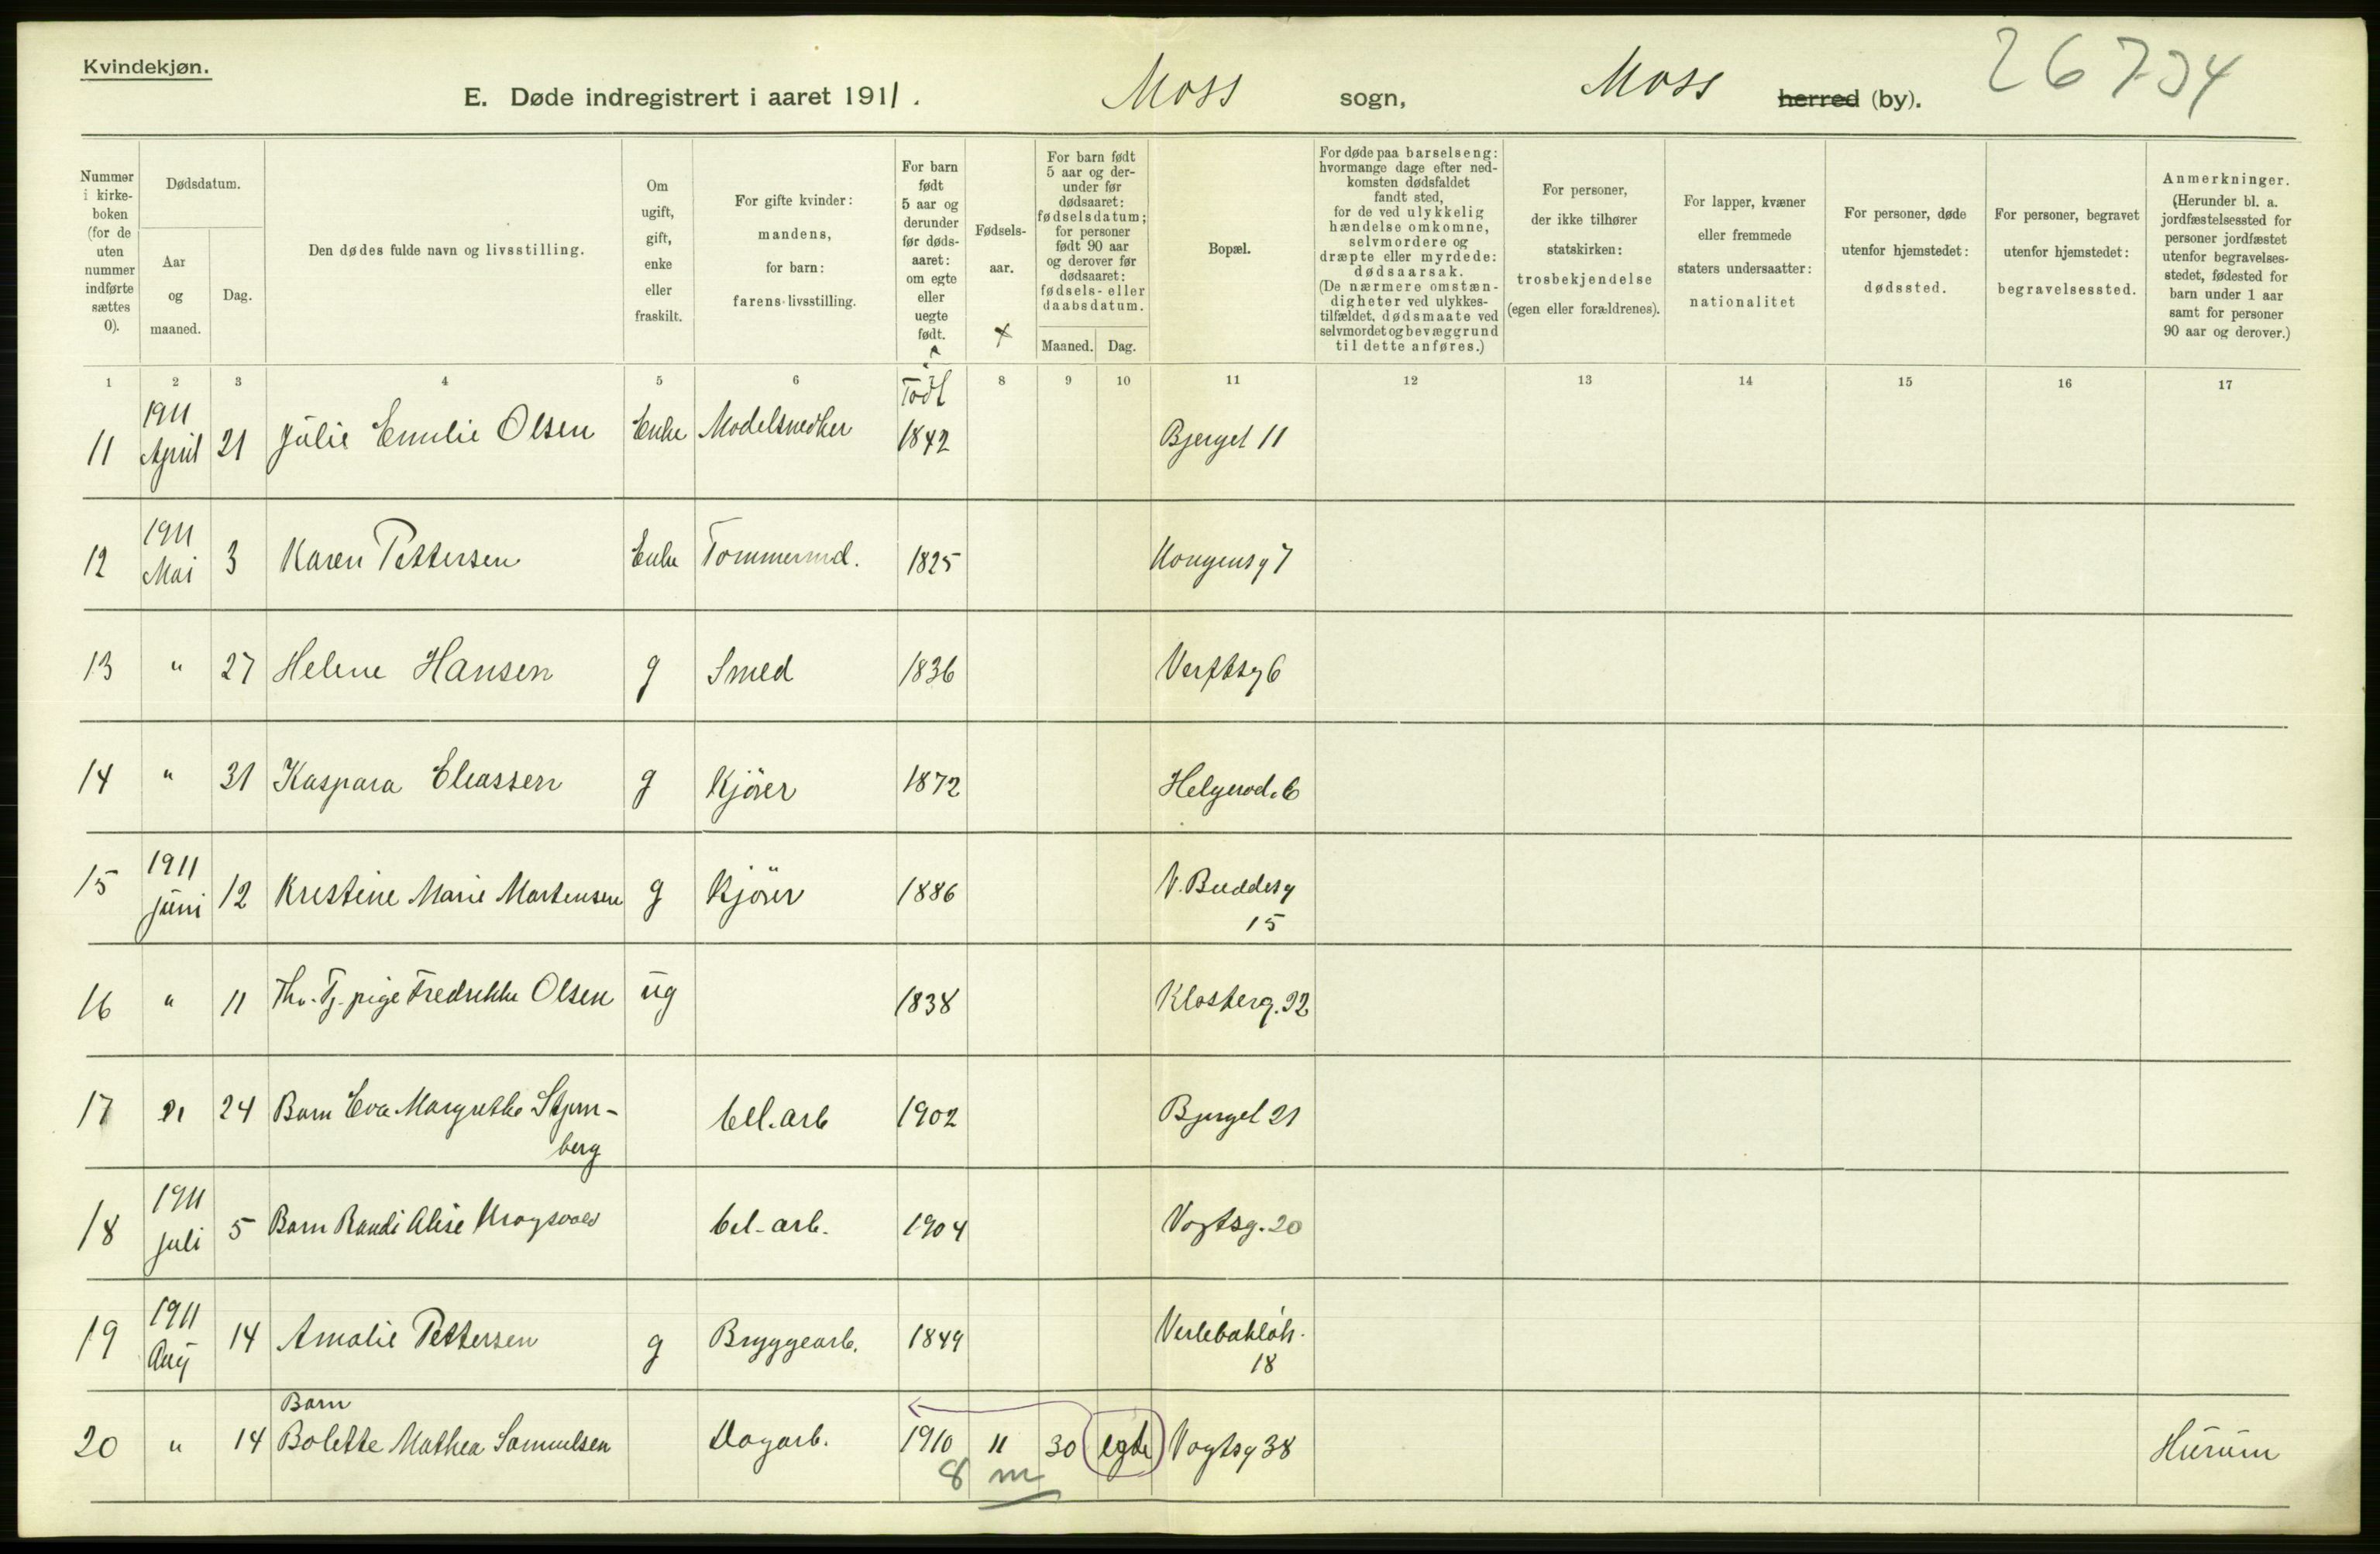 Kvindekjøn.
E. Døde indregistrert i aaret 1911. Moss sogn, Moss herred (by). 26734
Nummer i kirke-boken (for de uten nummer indførte sættes 0).
Dødsdatum.
Aar og maaned.
Dag.
Den dødes fulde navn og livsstilling.
Om ugift, gift, enke eller fraskilt.
For gifte kvinder: mandens, for barn: farens livsstilling.
For barn født 5 aar og derunder før døds-aaret: om egte eller uegte født.
Fødsels-aar.
For barn født 5 aar og der-under før dødsaaret: fødselsdatum; for personer født 90 aar og derover før dødsaaret: fødsels- eller daabsdatum.
Maaned. Dag.
Bopæl.
For døde paa barselseng: hvormange dage efter ned-komsten dødsfaldet fandt sted, for de ved ulykkelig hændelse omkomne, selvmordere og dræpte eller myrdede: dødsaarsak. (De nærmere omstæn-digheter ved ulykkes-tilfældet, dødsmaate ved selvmordet og bevæggrund til dette anføres.)
For personer, der ikke tilhører statskirken: trosbekjendelse (egen eller forældrenes).
For lapper, kvæner eller fremmede staters undersaatter: nationalitet
For personer, døde utenfor hjemstedet: dødssted.
For personer, begravet utenfor hjemstedet: begravelsessted.
Anmerkninger. (Herunder bl. a. jordfæstelsessted for personer jordfæstet utenfor begravelses-stedet, fødested for barn under 1 aar samt for personer 90 aar og derover.)
1 2 3 4 5 6 8 9 10 11 12 13 14 15 16 17
Født
11 1911 April 21 Julie Emilie Olsen Enke Modelsnedker 1842 Bjerget 11
12 1911 Mai 3 Karen Pettersen Enke Tømmermd. 1825 Kongensg 7
13 " 27 Helene Hansen g Smed 1836 Verftsg 6
14 " 31 Kaspara Eliassen g Kjörer 1872 Helgerød. 6
15 1911 juni 12 Kristine Marie Martensen g Kjörer 1886 V. Buddesg
15
16 " 11 Fhv. Tj. pige Fredrikke Olsen ug 1838 Klosterg. 32
17 " 24 Barn Eva Margrethe Stjern-
berg cell. arb 1902 Bjerget 21
18 1911 juli 5 Barn Randi Alise Krogsvold cel. arb. 1904 Vogtsg. 20
19 1911 Aug 14 Amalie Pettersen g Bryggearb. 1849 Verlebakløk.
18
Barn
20 " 14 Bolette Mathea Samuelsen Dagarb. 1910 11 30 egte Vogtsg 38 Hurum
8 m